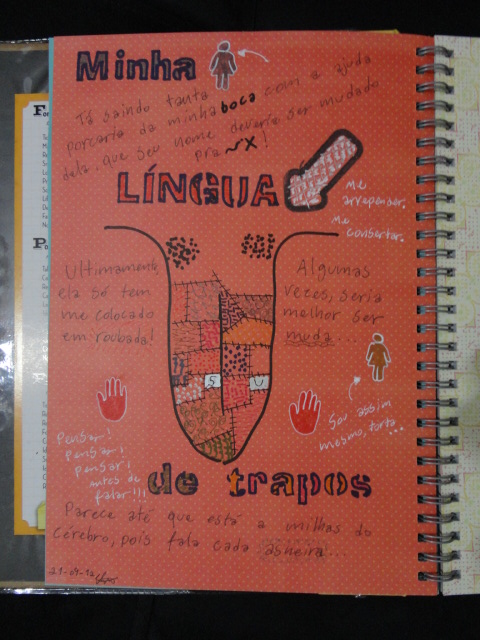 Minha
Tá saindo tanta
porcaria da minha boca com a ajuda
dela, que seu nome deveria ser mudado
pra
LÍNGUA
me
arrepender.
Me
consertar.
Ultimamente,
ela só tem
me colocado
em roubada!
Algumas
vezes, seria
melhor ser
muda...
S U
Pensar!
pensar!
pensar!
antes de
falar!!!
Sou assim
mesmo, torta...
de trapos
Parece até que está a milhas do
cérebro, pois fala cada asneira...
21-09-12